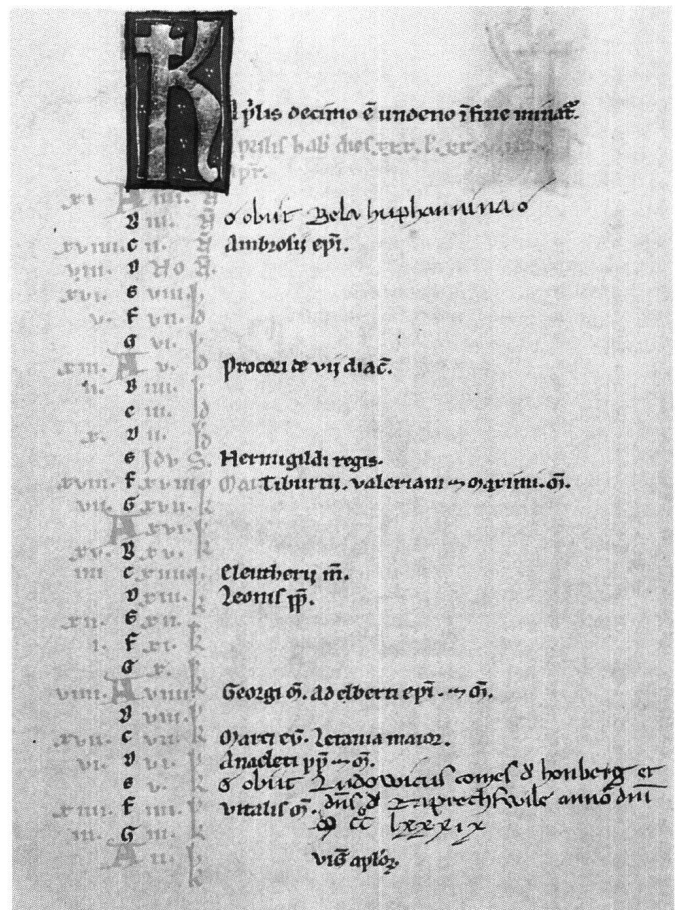 K
Ap̉lis decimo ē undeno ī fine minat᷑.
aprilis hab& dies xxx. l'. xx.
xi A iiii.
B iii. o obiit Bela huphannina o
xviiii. c ii. Ambrosij epī.
viii. D No
xvi. e viii.
v. F vii.
G vi.
xiii. A v. Procori de vij diac̄.
ii. B iiii.
c iii.
x. D ii.
e Idus Hermigildi regis.
xviii. F xviii. Tiburtii. valeriani ⁊ Maximi. m̄.
vii. G xvii. k
A xvi. k
xv. B xv. k
iiii c xiiii. k Eleutherij m̄.
D xiii. k Leonis pp̄.
xii. e xii. k
i. F xi. k
G x. k
viiii. A viiii. k Georgi m̄. Adelberti epī. ⁊ m̄.
B viii. k
xvii. c vii. k Marci ev̄. Letania maior.
vi. D vi. k Anacleti pp̄ ⁊ m̄.
e v. k o obiit Ludowicus comes d' honberg et
xiiii. F iiii. k vitalis m̄. dn̄s d' Raprechswile anno dn̄i
iii. G iii. k Mº CC lxxxix
A ii. k viḡ aplōꝝ